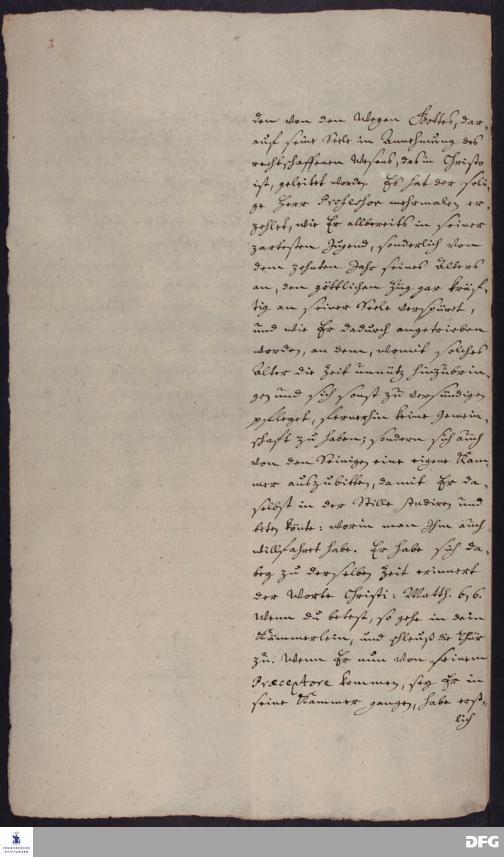 3
den von den Wegen Gottes, dar-
auf seine Seele in Annehmung des
rechtschaffenen Wesens, das in Christo
ist, geleitet worden. Es hat der seli-
ge Herr Professor mehrmalen er-
zehlet, wie Er allbereits in seiner
zartesten Jugend, sonderlich von
dem zehnten Jahr seines Alters
an, den göttlichen Zug gar kräf-
tig an seiner Seele verspüret,
und wie Er dadurch angetrieben
worden, an dem, womit solches
Alter die Zeit unnütz hinzubrin-
gen und sich sonst zu versündigen
pfleget, fernerhin keine Gemein-
schaft zu haben; sondern sich auch
von den Seinigen eine eigene Kam-
mer auszubitten, damit Er da-
selbst in der Stille studiren und
beten könte: worin man Ihm auch
willfahret habe. Er habe sich da-
bey zu derselben Zeit erinnert
der Worte Christi: Matth. 6,6.
Wenn du betest, so gehe in dein
Kämmerlein, und schleuß die Thür
zu. Wenn Er nun von seinem
Præceptore kommen, sey Er in
seine Kammer gangen, habe erst-
lich
FRANCKESCHE
STIFTUNGEN
DFG